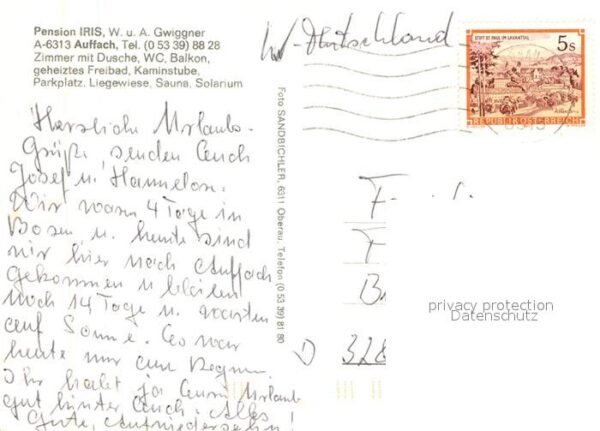 Pension IRIS, W. u. A. Gwiggner
A-6313 Auffach, Tel. (0 53 39) 88 28
Zimmer mit Dusche, WC, Balkon,
geheiztes Freibad, Kaminstube,
Parkplatz, Liegewiese, Sauna, Solarium
W-Deutschland
STIFT ST. PAUL IM LAVANTTAL
5s
REPUBLIK ÖSTERREICH
Foto SANDBICHLER, 6311 Oberau, Telefon (0 53 39) 81 80
Herzliche Urlaubs-
Grüße, senden Euch
Josef u. Hannelore.
Wir waren 4 Tage in
Bozen u. heute sind
wir hier nach Auffach
gekommen u. bleiben
noch 14 Tage u. warten
auf Sonne. Es war
heute nur ein Regen.
Ihr habt ja Euern Urlaub
gut hinter Euch. Alles
Gute, Aufwiedersehn!
F
F
B
D 328
privacy protection
Datenschutz